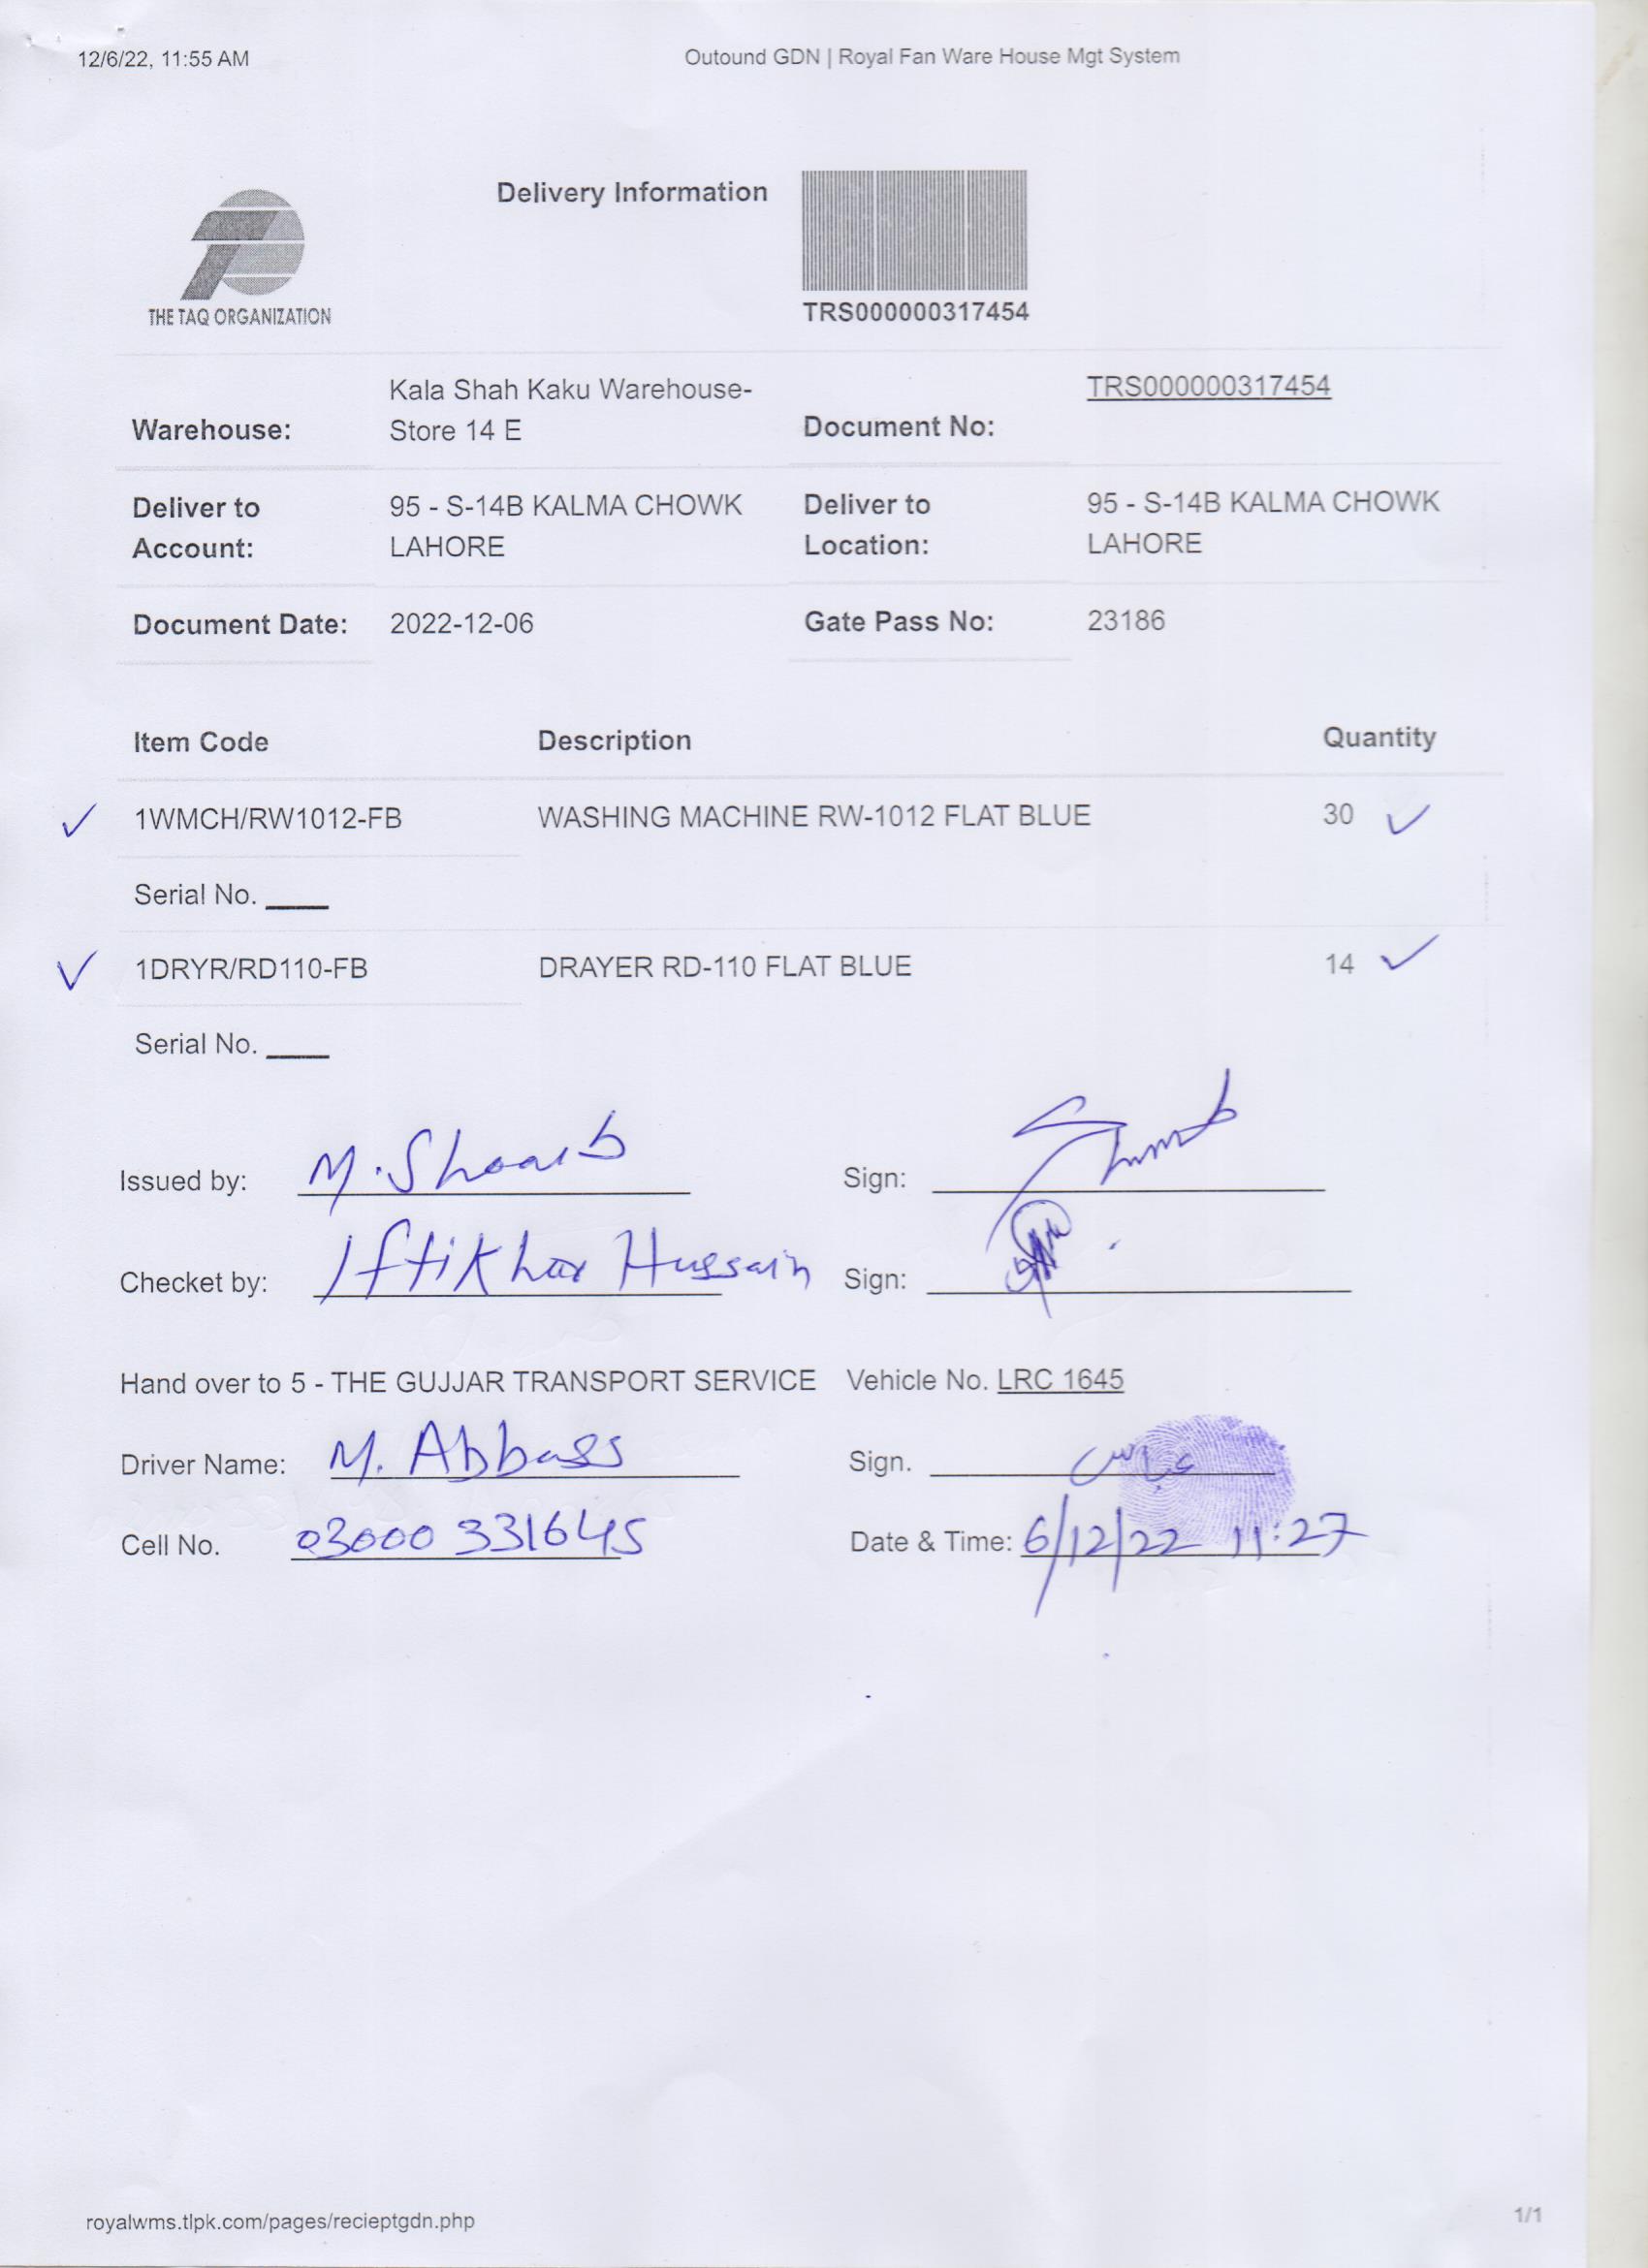 12/6/22, 11:55 AM
Outound GDN | Royal Fan Ware House Mgt System
Delivery Information
THE TAQ ORGANIZATION
TRS000000317454
Warehouse: Kala Shah Kaku Warehouse-
Store 14 E
Document No: TRS000000317454
Deliver to
Account:
95 - S-14B KALMA CHOWK
LAHORE
Deliver to
Location:
95 - S-14B KALMA CHOWK
LAHORE
Document Date: 2022-12-06
Gate Pass No: 23186
Item Code Description Quantity
1WMCH/RW1012-FB WASHING MACHINE RW-1012 FLAT BLUE 30
Serial No.
1DRYR/RD110-FB DRAYER RD-110 FLAT BLUE 14
Serial No.
Issued by: M. Shoaib Sign:
Checket by: Iftikhar Hussain Sign:
Hand over to 5 - THE GUJJAR TRANSPORT SERVICE Vehicle No. LRC 1645
Driver Name: M. Abbass Sign. عباس
Cell No. 03000 331645 Date & Time: 6/12/22 11:27
royalwms.tlpk.com/pages/recieptgdn.php
1/1